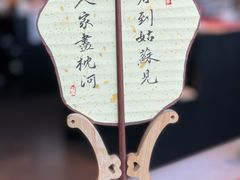 君到姑蘇見
人家盡枕河